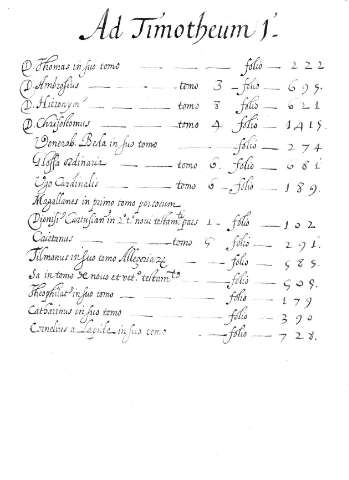 Ad Timotheum 1.
D. Thomas in suo tomo — — — folio — 222
D. Ambrosius — tomo 3 — folio — 695.
D. Hieronym⁹ — tomo 8 folio — 621
D. Chrisostomus — tomo 4 folio — 1415
Venerab. Beda in suo tomo — folio — 274
Glossa ordinaria — tomo 6. folio — 681.
Ugo Cardinalis — tomo 6 — folio — 189.
Magallanes in primo tomo per totum
Dionisi⁹ Cartusian⁹ in 2. t. noui testam.ti pars 1 — folio — 102
Caietanus — tomo 5 folio — 291.
Tilmanus in suo tomo Allegoriarũ — folio — 585.
Sa in tomo de nouo et vet.e testam.to — folio — 509.
Theophilat⁹ in suo tomo — folio — 179
Catharinus in suo tomo — folio — 390
Cornelius a Lapide in suo tomo — folio — 728.